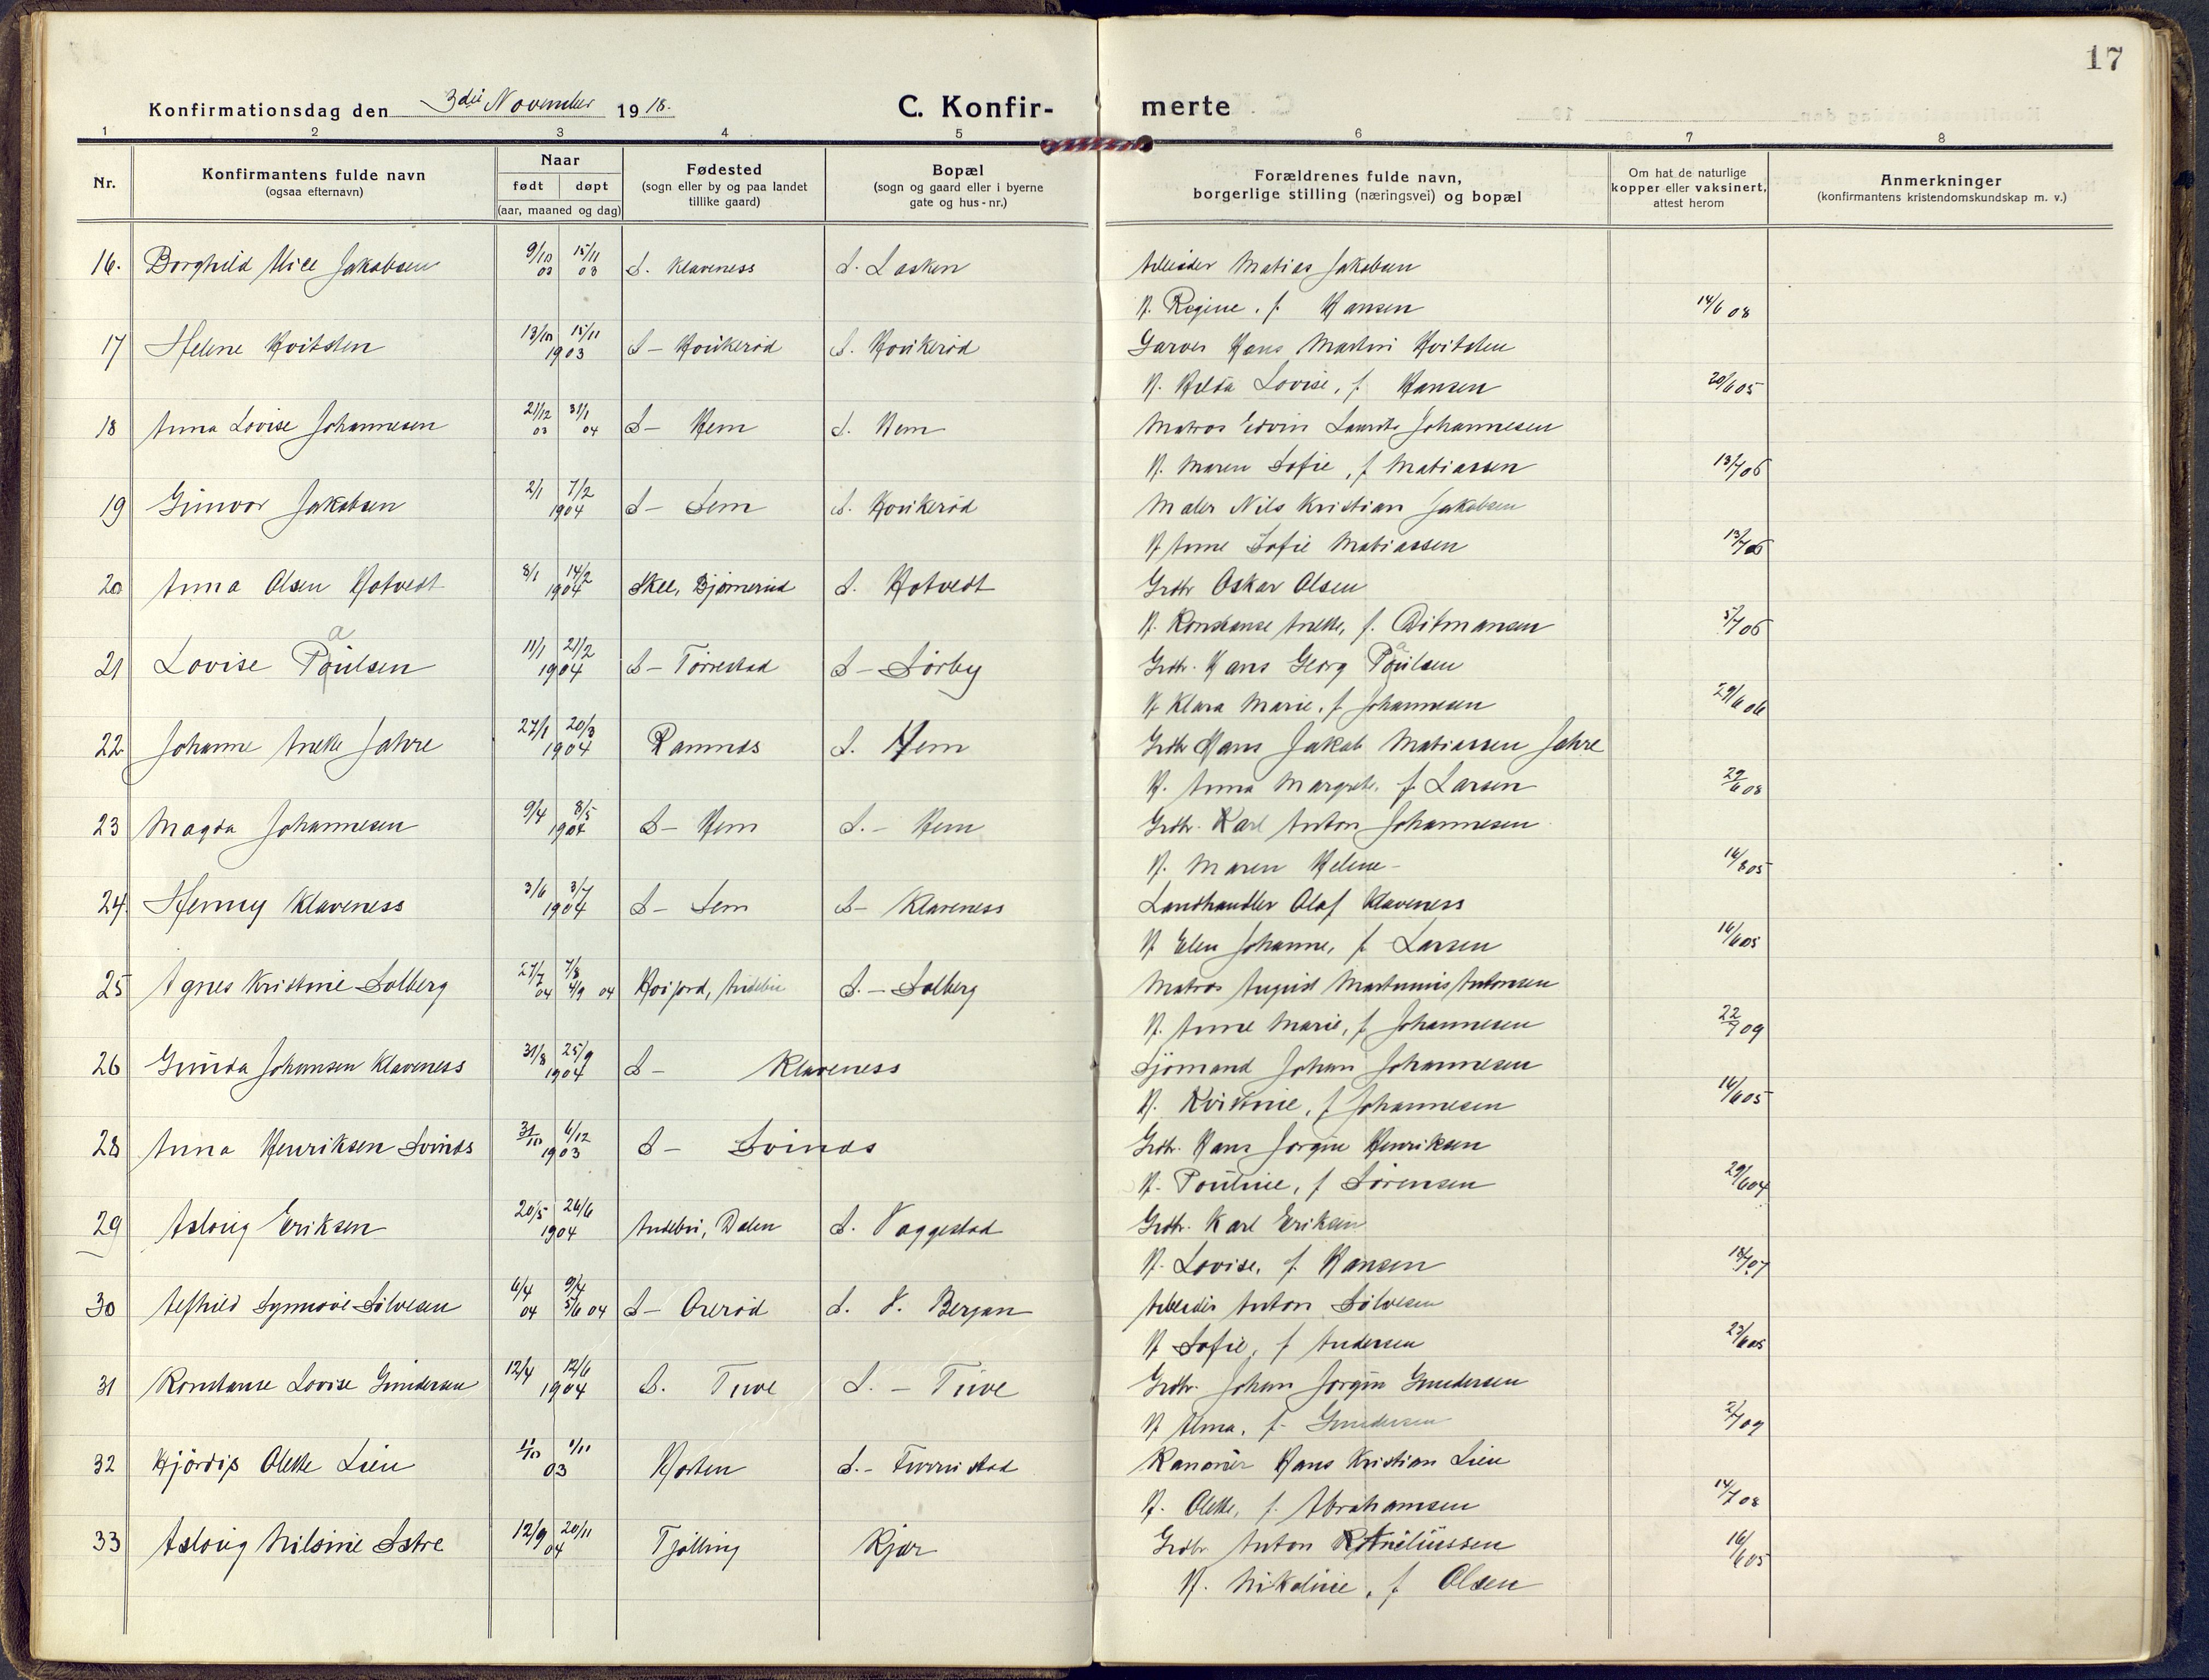 17
Konfirmationsdag den 3die November 1918. C. Konfirmerte
1 2 3 4 5 6 7 8
Nr. Konfirmantens fulde navn (ogsaa efternavn) Naar født døpt (aar, maaned og dag) Fødested (sogn eller by og paa landet tillike gaard) Bopæl (sogn og gaard eller i byerne gate og hus-nr.) Forældrenes fulde navn, borgerlige stilling (næringsvei) og bopæl Om hat de naturlige kopper eller vaksinert, attest herom Anmerkninger (konfirmantens kristendomskundskap m. v.)
16. Borghild Alice Jakobsen 9/10 03 15/11 03 S. Klaveness S. Lasken Arbeider Matias Jakobsen
H. Regine, f. Hansen 14/6 08
17 Helene Hvitsten 13/10 15/11 1903 S- Houkerød S. Houkerød Garver Hans Martin Hvitsten
H. Hilda Lovise, f. Hansen 20/6 05
18 Anna Lovise Johannesen 21/12 03 31/1 04 S- Hem S. Hem Matros Edvin Laurits Johannesen
H. Maren Sofie, f. Matiassen 13/7 06
19 Gunvor Jakobsen 2/1 7/2 1904 S- Sem S. Houkerød Maler Nils Kristian Jakobsen
H Anne Sofie Matiassen 13/7 06
20 Anna Olsen Hotvedt 8/1 14/2 1904 Skee, Bjørnerud S. Hotvedt Grdbr Oskar Olsen
H. Konstanse Anette, f. Ditmansen 5/7 06
21 Lovise Paulsen 11/1 21/2 1904 S- Torrestad S- Sørby Grdbr. Hans Georg Paulsen
H Klara Marie, f Johannesen 29/6 06
22 Johanne Anette Jahre 27/1 20/3 1904 Ramnes S. Hem Grdbr Hans Jakob Matiassen Jahre
H. Anna Margrete, f Larsen 22/6 08
23 Magda Johannesen 9/4 8/5 1904 S- Hem S.- Hem Grdbr. Karl Anton Johannesen
H. Maren Helene- 16/8 05
24 Henny Klaveness 3/6 3/7 1904 S- Sem S- Klaveness Landhandler Olaf Klaveness
H Elen Johanne, f. Larsen 16/6 05
25 Agnes Kristine Solberg 27/7 04 7/8 4/9 04 Høijord, Andebu S.- Solberg Matros August Martinius Antonsen
H. Anne Marie, f. Johannesen 22/7 09
26 Gunda Johansen Klaveness 31/8 25/9 1904 S- Klaveness Sjømand Johan Johannesen
H. Kristine, f Johannesen 16/6 05
28 Anna Henriksen Svinds 31/10 6/12 1903 S- Svinds Grdbr. Hans Jørgen Henriksen
H. Pouline, f Sørensen 29/6 04
29 Aslaug Eriksen 20/5 26/6 1904 Andebu, Dalen S. Vaggestad Grdbr. Karl Eriksen
H. Lovise, f. Hansen 18/7 07
30 Alfhild Synnøve Sølvesen 6/4 04 9/4 5/6 04 S- Ørerød S. V. Bergan Arbeider Anton Sølvesen
H Sofie, f Andersen 23/6 05
31 Konstanse Lovise Gundersen 12/4 12/6 1904 S. Tuve S.- Tuve Grdbr. Johan Jørgen Gundersen
H Alma, f- Gundersen 2/7 09
32 Hjördis Olette Lien 11/10 1/11 03 Horten S.- Furrustad Kanonér Hans Kristian Lien
H. Olette, f. Abrahamsen 14/7 08
33 Aslaug Nilsine Istre 12/9 20/11 04 Tjølling Kjær Grdbr Anton Korneliussen 16/6 05
H. Nikoline, f Olsen